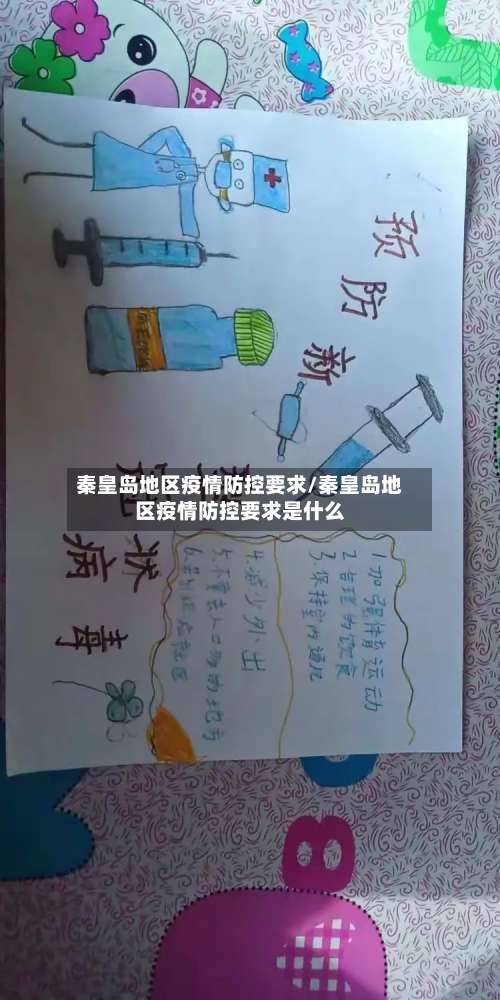 秦皇岛地区疫情防控要求/秦皇岛地
区疫情防控要求是什么
预防新
冠
状
病毒
1.加强体育运动
2.合理的饮食
3.保持室内通风
4.减少外出
5.不要去人口多的地方